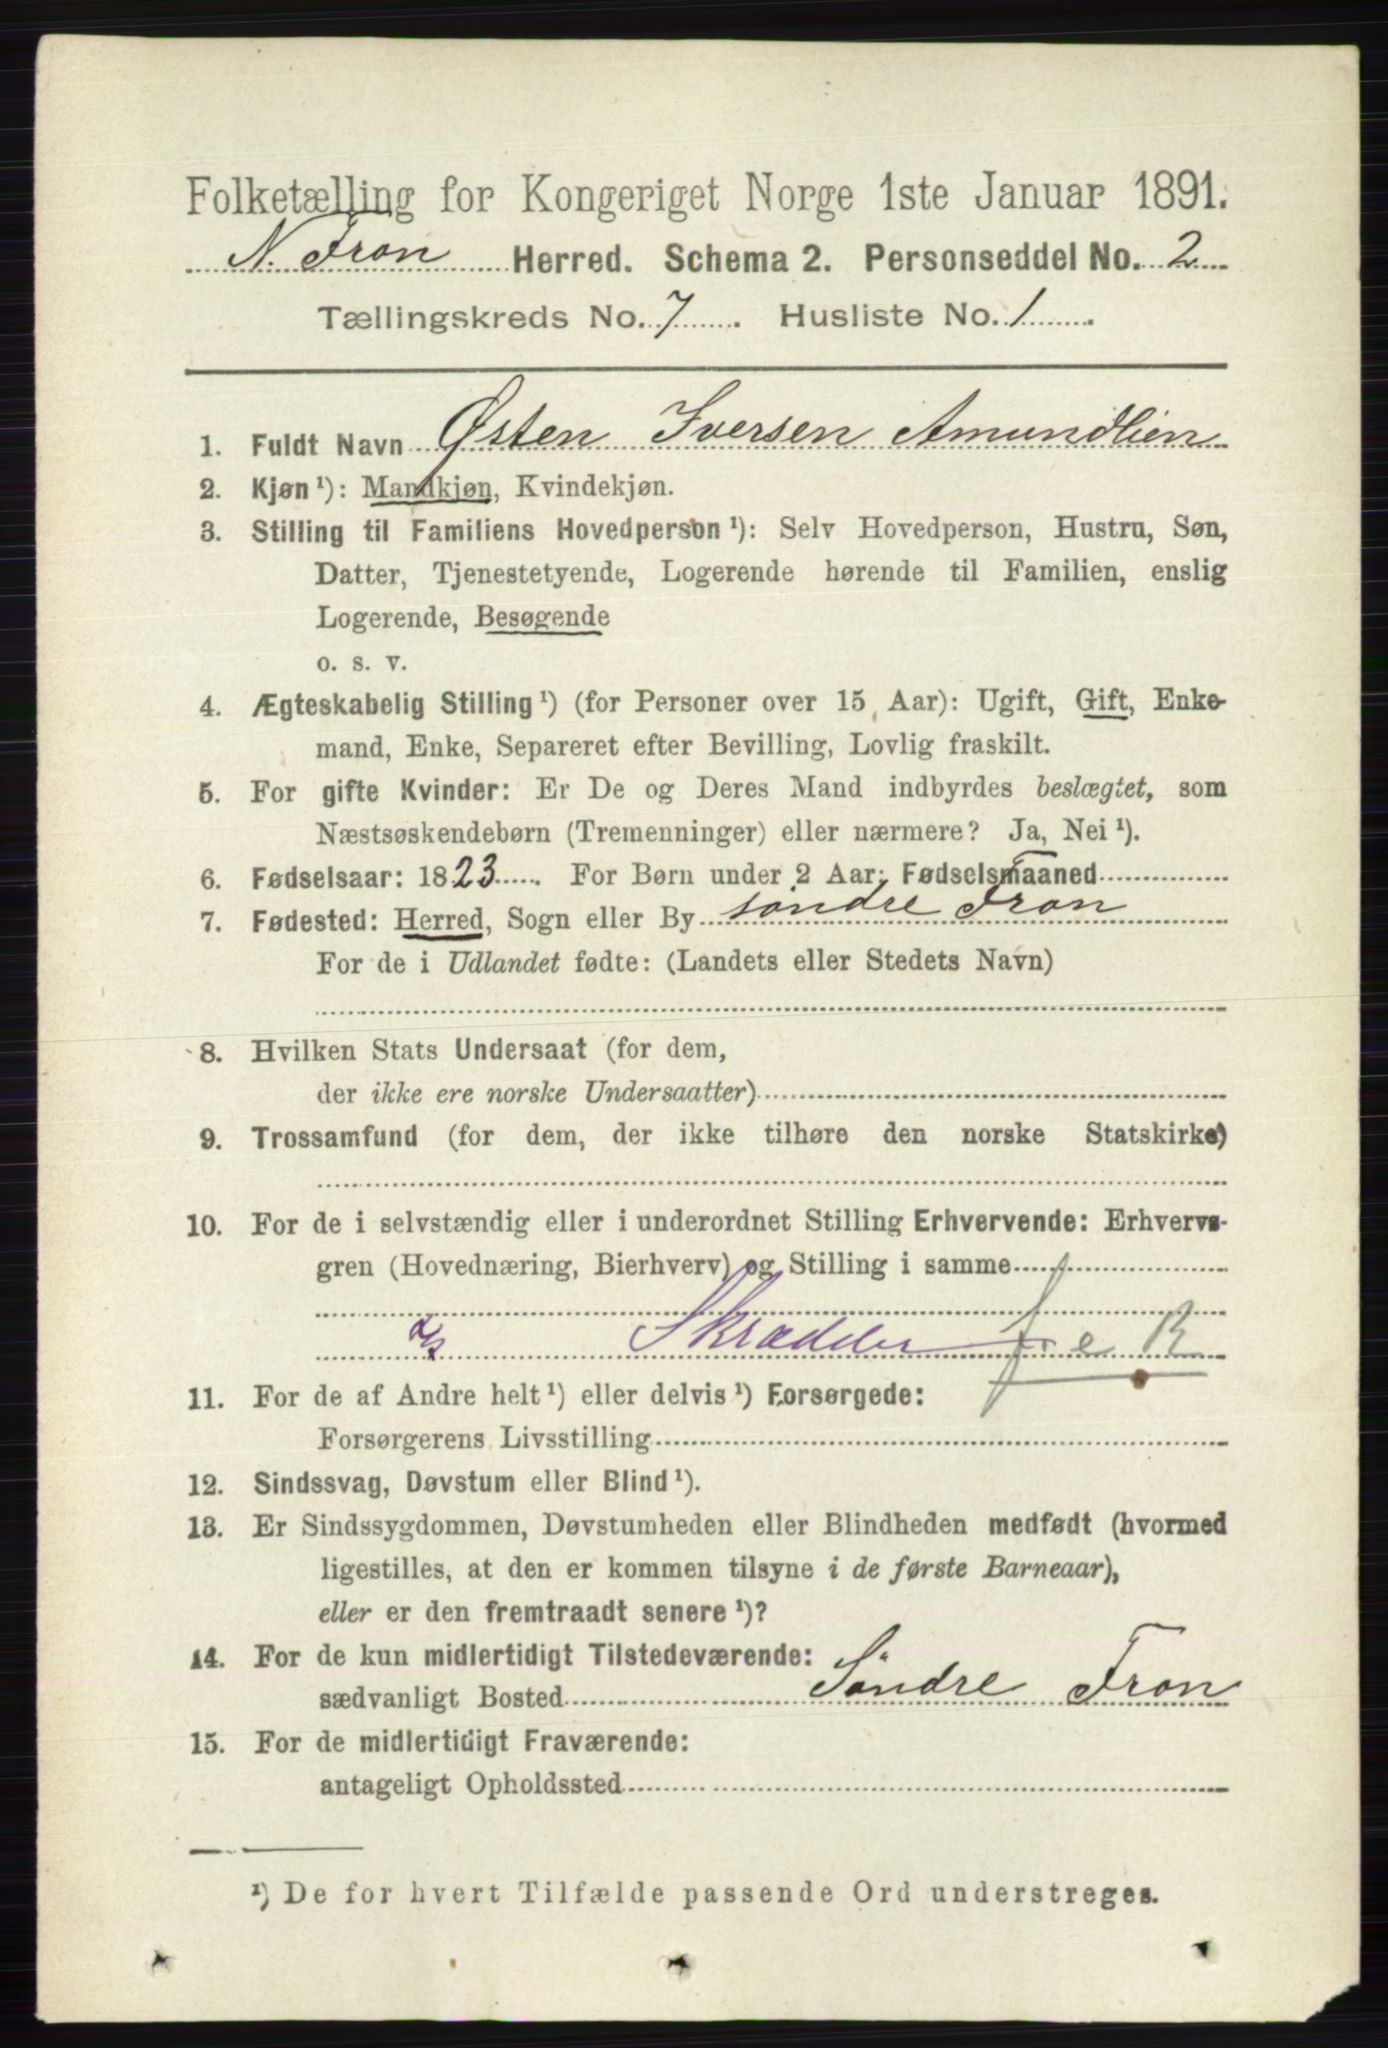 Folketælling for Kongeriget Norge 1ste Januar 1891.
N. Fron Herred. Schema 2. Personseddel No. 2
Tællingskreds No. 7 Husliste No. 1
1. Fuldt Navn Østen Iversen Amundlien
2. Kjøn¹): Mandkjøn, Kvindekjøn.
3. Stilling til Familiens Hovedperson¹): Selv Hovedperson, Hustru, Søn,
Datter, Tjenestetyende, Logerende hørende til Familien, enslig
Logerende, Besøgende
o. s. v.
4. Ægteskabelig Stilling¹) (for Personer over 15 Aar): Ugift, Gift, Enke-
mand, Enke, Separeret efter Bevilling, Lovlig fraskilt.
5. For gifte Kvinder: Er De og Deres Mand indbyrdes beslægtet, som
Næstsøskendebørn (Tremenninger) eller nærmere? Ja, Nei¹).
6. Fødselsaar: 1823 For Børn under 2 Aar: Fødselsmaaned
7. Fødested: Herred, Sogn eller By söndre Fron
For de i Udlandet fødte: (Landets eller Stedets Navn)
8. Hvilken Stats Undersaat (for dem,
der ikke ere norske Undersaatter)
9. Trossamfund (for dem, der ikke tilhøre den norske Statskirke)
10. For de i selvstændig eller i underordnet Stilling Erhvervende: Erhvervs-
gren (Hovednæring, Bierhverv) og Stilling i samme
Skrædder
11. For de af Andre helt¹) eller delvis¹) Forsørgede:
Forsørgerens Livsstilling
12. Sindssvag, Døvstum eller Blind¹).
13. Er Sindssygdommen, Døvstumheden eller Blindheden medfødt (hvormed
ligestilles, at den er kommen tilsyne i de første Barneaar),
eller er den fremtraadt senere¹)?
14. For de kun midlertidigt Tilstedeværende:
sædvanligt Bosted Söndre Fron
15. For de midlertidigt Fraværende:
antageligt Opholdssted
¹) De for hvert Tilfælde passende Ord understreges.